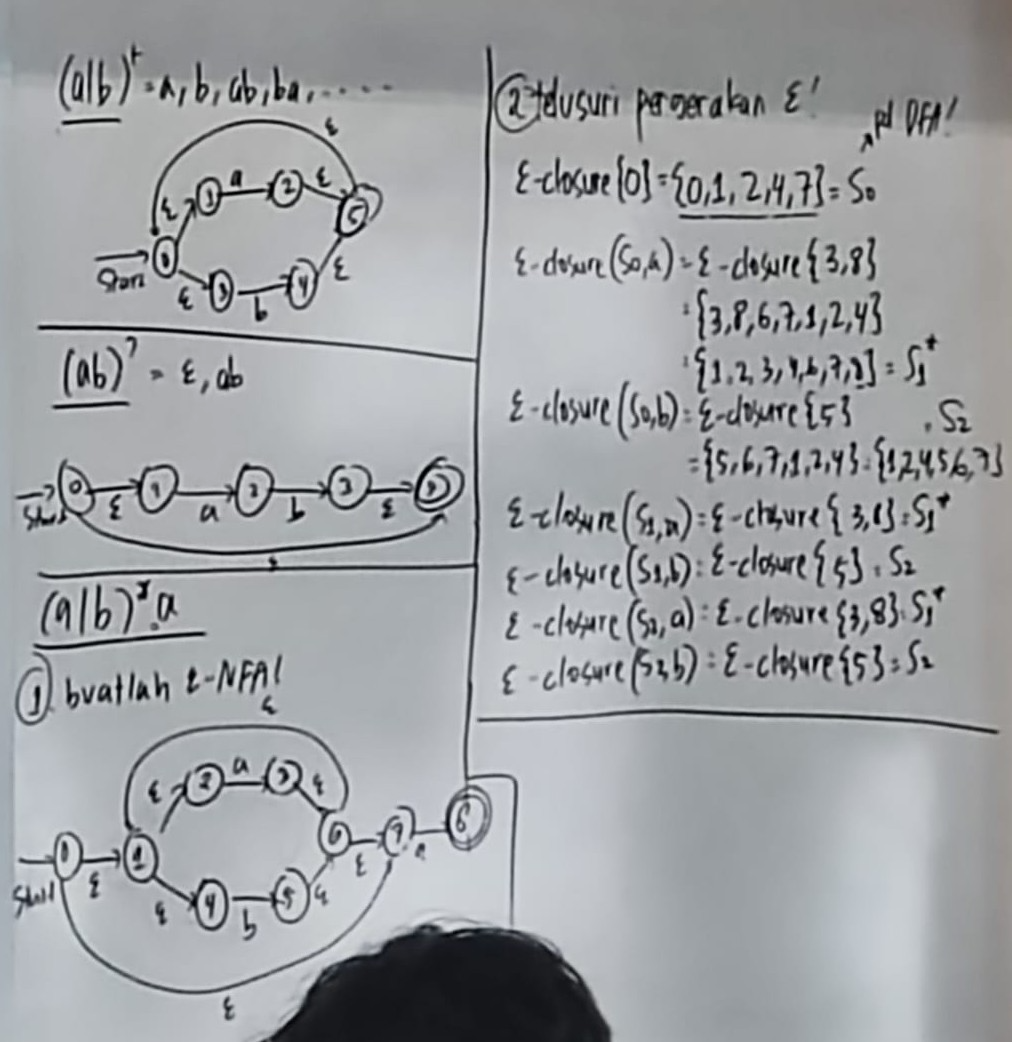 (a|b)⁺ = a, b, ab, ba, .....
ε
a
ε
ε
1
2
5
0
Start
ε
3
b
4
ε
(ab)? = ε, ab
0
ε
1
a
2
b
3
ε
Start
ε
(a|b)*.a
① buatlah ε-NFA!
ε
ε
2
a
3
ε
0
ε
1
6
ε
7
a
8
Start
ε
4
b
5
ε
ε
② telusuri pergerakan ε!
pd DFA!
ε-closure{0} = {0,1,2,4,7} = S₀
ε-closure(S₀,a) = ε-closure{3,8}
= {3,8,6,7,1,2,4}
= {1,2,3,4,6,7,8} = S₁*
ε-closure(S₀,b) = ε-closure{5}
= S₂
= {5,6,7,1,2,4} = {1,2,4,5,6,7}
ε-closure(S₁,a) = ε-closure{3,8} = S₁*
ε-closure(S₁,b) = ε-closure{5} = S₂
ε-closure(S₂,a) = ε-closure{3,8} = S₁*
ε-closure(S₂,b) = ε-closure{5} = S₂